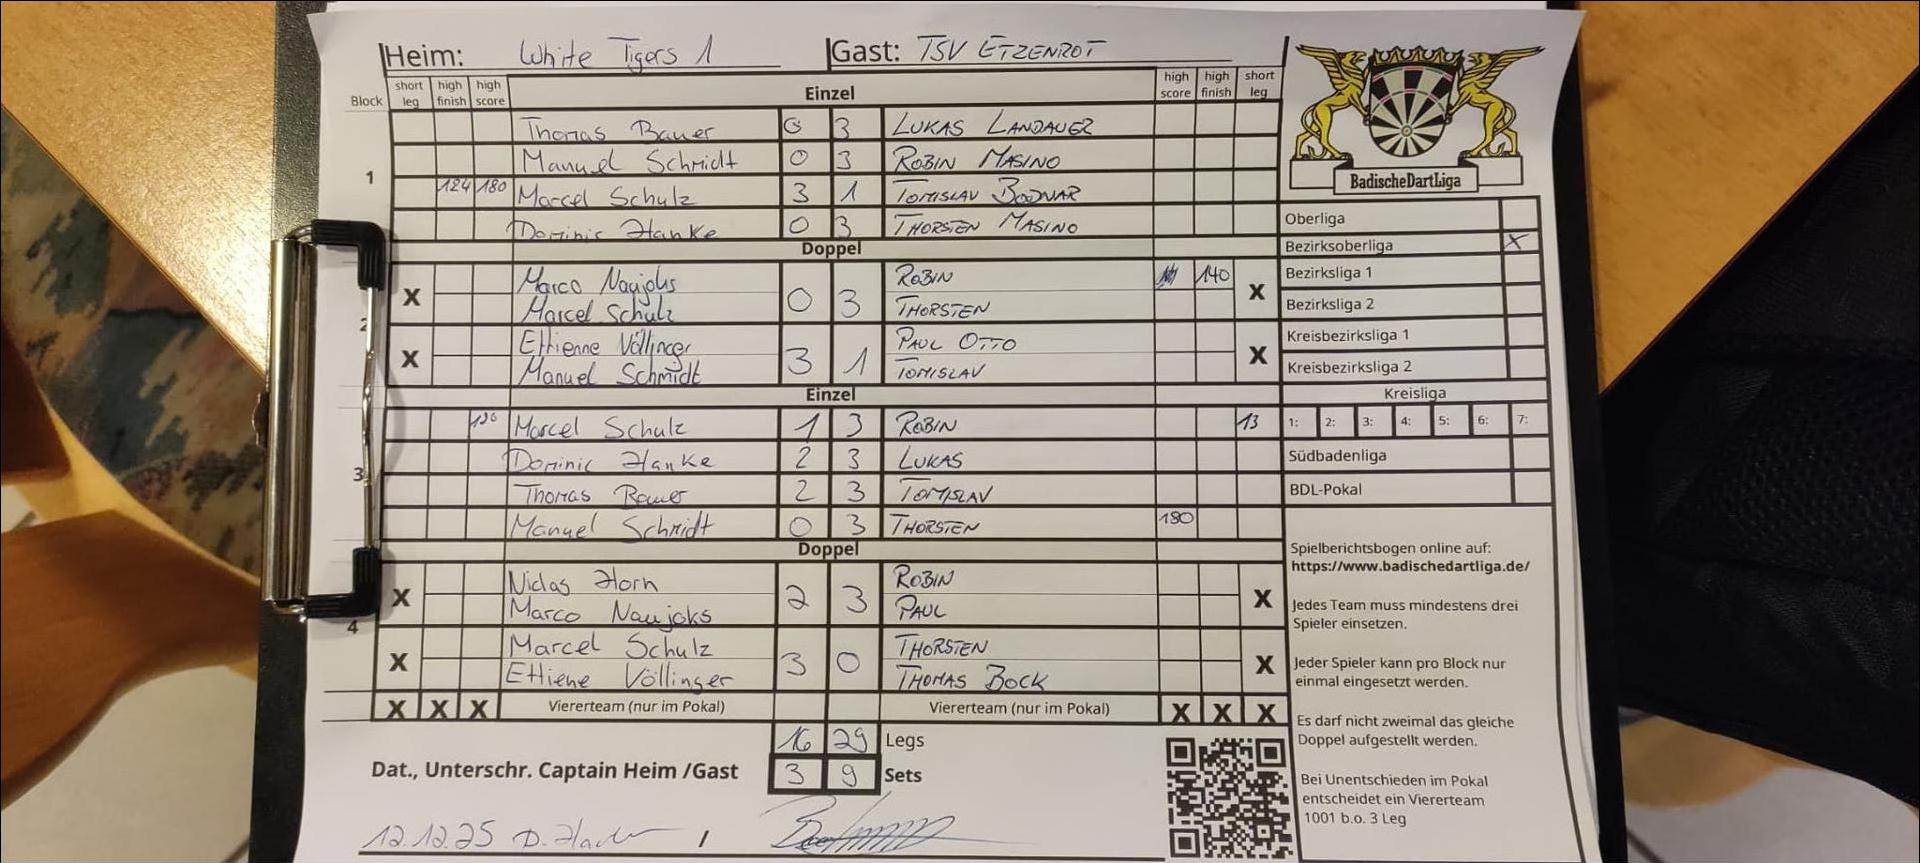 Heim: White Tigers 1 Gast: TSV ETZENROT
Block short leg high finish high score Einzel high score high finish short leg
Thomas Bauer 0 3 LUKAS LANDAUER
Manuel Schmidt 0 3 ROBIN MASINO
1 124 180 Marcel Schulz 3 1 TOMISLAV BODNAR
Dominic Hanke 0 3 THORSTEN MASINO
Doppel
Marco Naujoks ROBIN 140
X 0 3 X
Marcel Schulz THORSTEN
2
Ettienne Völlinger PAUL OTTO
X 3 1 X
Manuel Schmidt TOMISLAV
Einzel
Marcel Schulz 1 3 ROBIN 13
Dominic Hanke 2 3 LUKAS
3
Thomas Bauer 2 3 TOMISLAV
Manuel Schmidt 0 3 THORSTEN 180
Doppel
Niclas Horn ROBIN
X 2 3 X
Marco Naujoks PAUL
4
Marcel Schulz THORSTEN
X 3 0 X
Ettiene Völlinger THOMAS BOCK
X X X Viererteam (nur im Pokal) Viererteam (nur im Pokal) X X X
16 29 Legs
Dat., Unterschr. Captain Heim /Gast 3 9 Sets
12.12.25 /
BadischeDartLiga
Oberliga
Bezirksoberliga X
Bezirksliga 1
Bezirksliga 2
Kreisbezirksliga 1
Kreisbezirksliga 2
Kreisliga
1: 2: 3: 4: 5: 6: 7:
Südbadenliga
BDL-Pokal
Spielberichtsbogen online auf:
https://www.badischedartliga.de/
Jedes Team muss mindestens drei
Spieler einsetzen.
Jeder Spieler kann pro Block nur
einmal eingesetzt werden.
Es darf nicht zweimal das gleiche
Doppel aufgestellt werden.
Bei Unentschieden im Pokal
entscheidet ein Viererteam
1001 b.o. 3 Leg